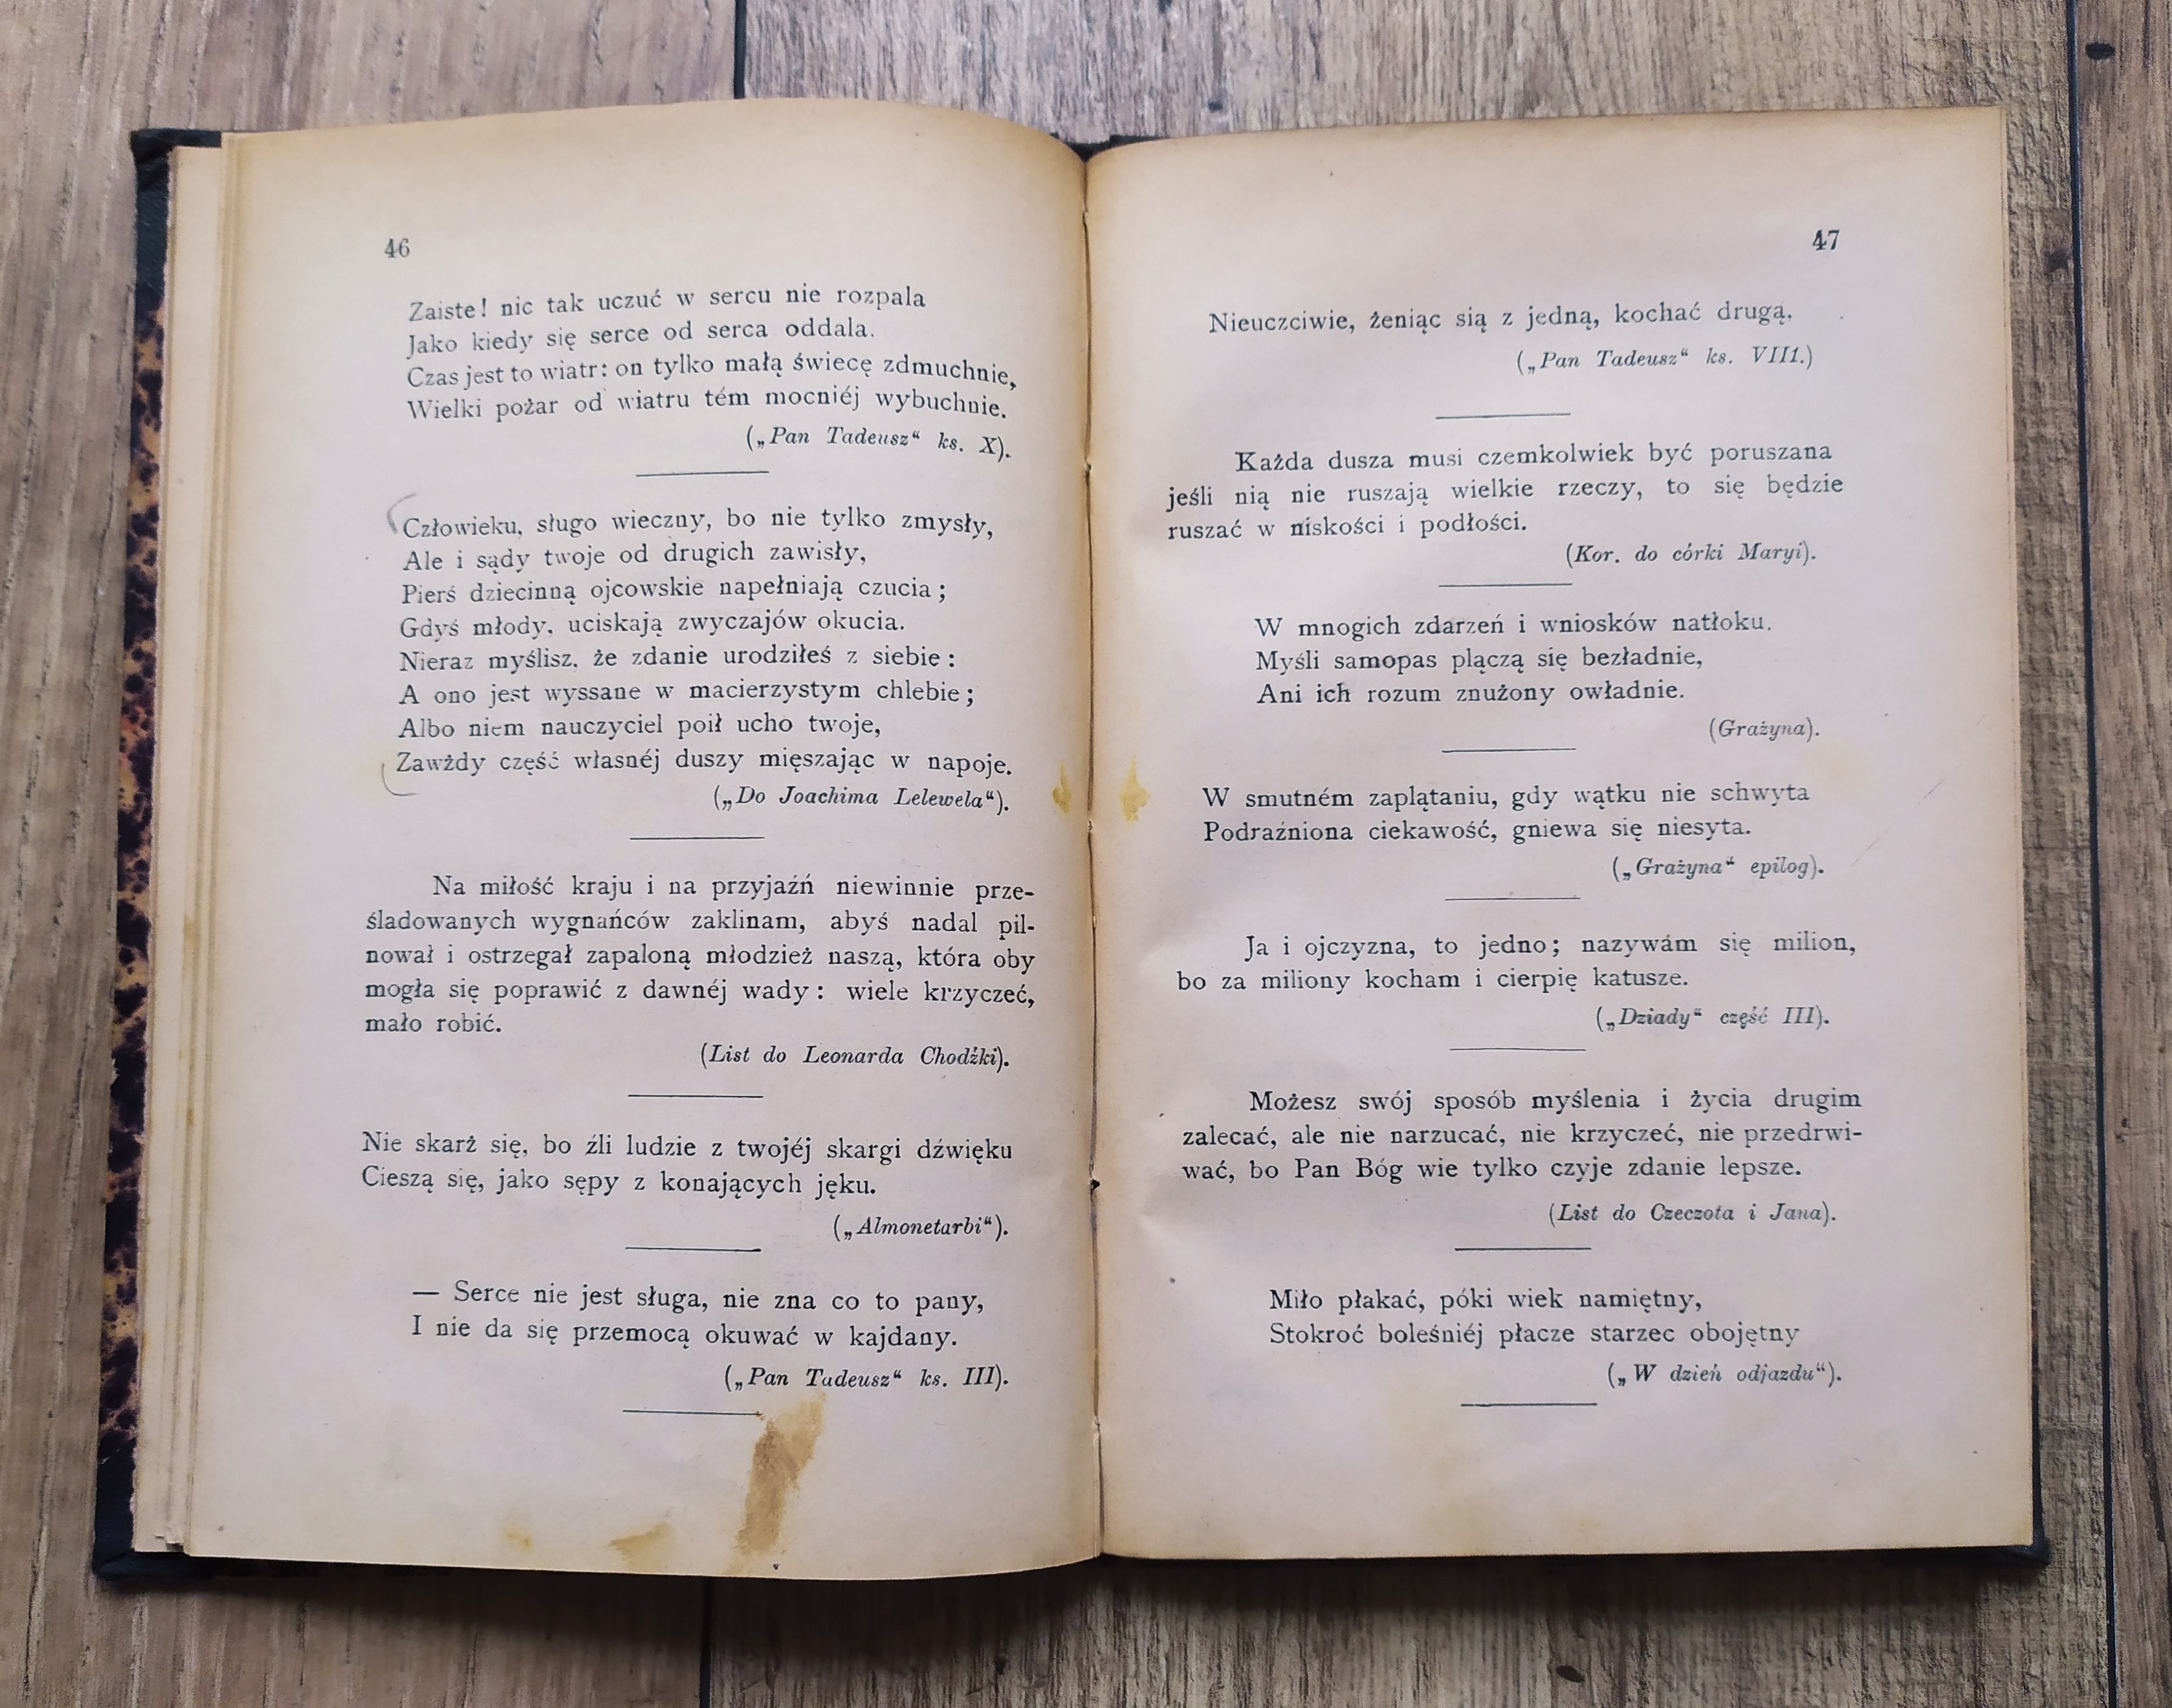 46
Zaiste! nic tak uczuć w sercu nie rozpala
Jako kiedy się serce od serca oddala.
Czas jest to wiatr: on tylko małą świecę zdmuchnie,
Wielki pożar od wiatru tém mocniéj wybuchnie.
(„Pan Tadeusz“ ks. X).
Człowieku, sługo wieczny, bo nie tylko zmysły,
Ale i sądy twoje od drugich zawisły,
Pierś dziecinną ojcowskie napełniają czucia;
Gdyś młody, uciskają zwyczajów okucia.
Nieraz myślisz, że zdanie urodziłeś z siebie:
A ono jest wyssane w macierzystym chlebie;
Albo niem nauczyciel poił ucho twoje,
Zawżdy część własnéj duszy mięszając w napoje.
(„Do Joachima Lelewela“).
Na miłość kraju i na przyjaźń niewinnie prze-
śladowanych wygnańców zaklinam, abyś nadal pil-
nował i ostrzegał zapaloną młodzież naszą, która oby
mogła się poprawić z dawnéj wady: wiele krzyczeć,
mało robić.
(List do Leonarda Chodźki).
Nie skarż się, bo źli ludzie z twojéj skargi dźwięku
Cieszą się, jako sępy z konających jęku.
(„Almonetarbi“).
— Serce nie jest sługa, nie zna co to pany,
I nie da się przemocą okuwać w kajdany.
(„Pan Tadeusz“ ks. III).
47
Nieuczciwie, żeniąc sią z jedną, kochać drugą.
(„Pan Tadeusz“ ks. VIII.)
Każda dusza musi czemkolwiek być poruszana
jeśli nią nie ruszają wielkie rzeczy, to się będzie
ruszać w niskości i podłości.
(Kor. do córki Maryi).
W mnogich zdarzeń i wniosków natłoku.
Myśli samopas plączą się bezładnie,
Ani ich rozum znużony owładnie.
(Grażyna).
W smutném zaplątaniu, gdy wątku nie schwyta
Podraźniona ciekawość, gniewa się niesyta.
(„Grażyna“ epilog).
Ja i ojczyzna, to jedno; nazywam się milion,
bo za miliony kocham i cierpię katusze.
(„Dziady“ część III).
Możesz swój sposób myślenia i życia drugim
zalecać, ale nie narzucać, nie krzyczeć, nie przedrwi-
wać, bo Pan Bóg wie tylko czyje zdanie lepsze.
(List do Czeczota i Jana).
Miło płakać, póki wiek namiętny,
Stokroć boleśniéj płacze starzec obojętny
(„W dzień odjazdu“).